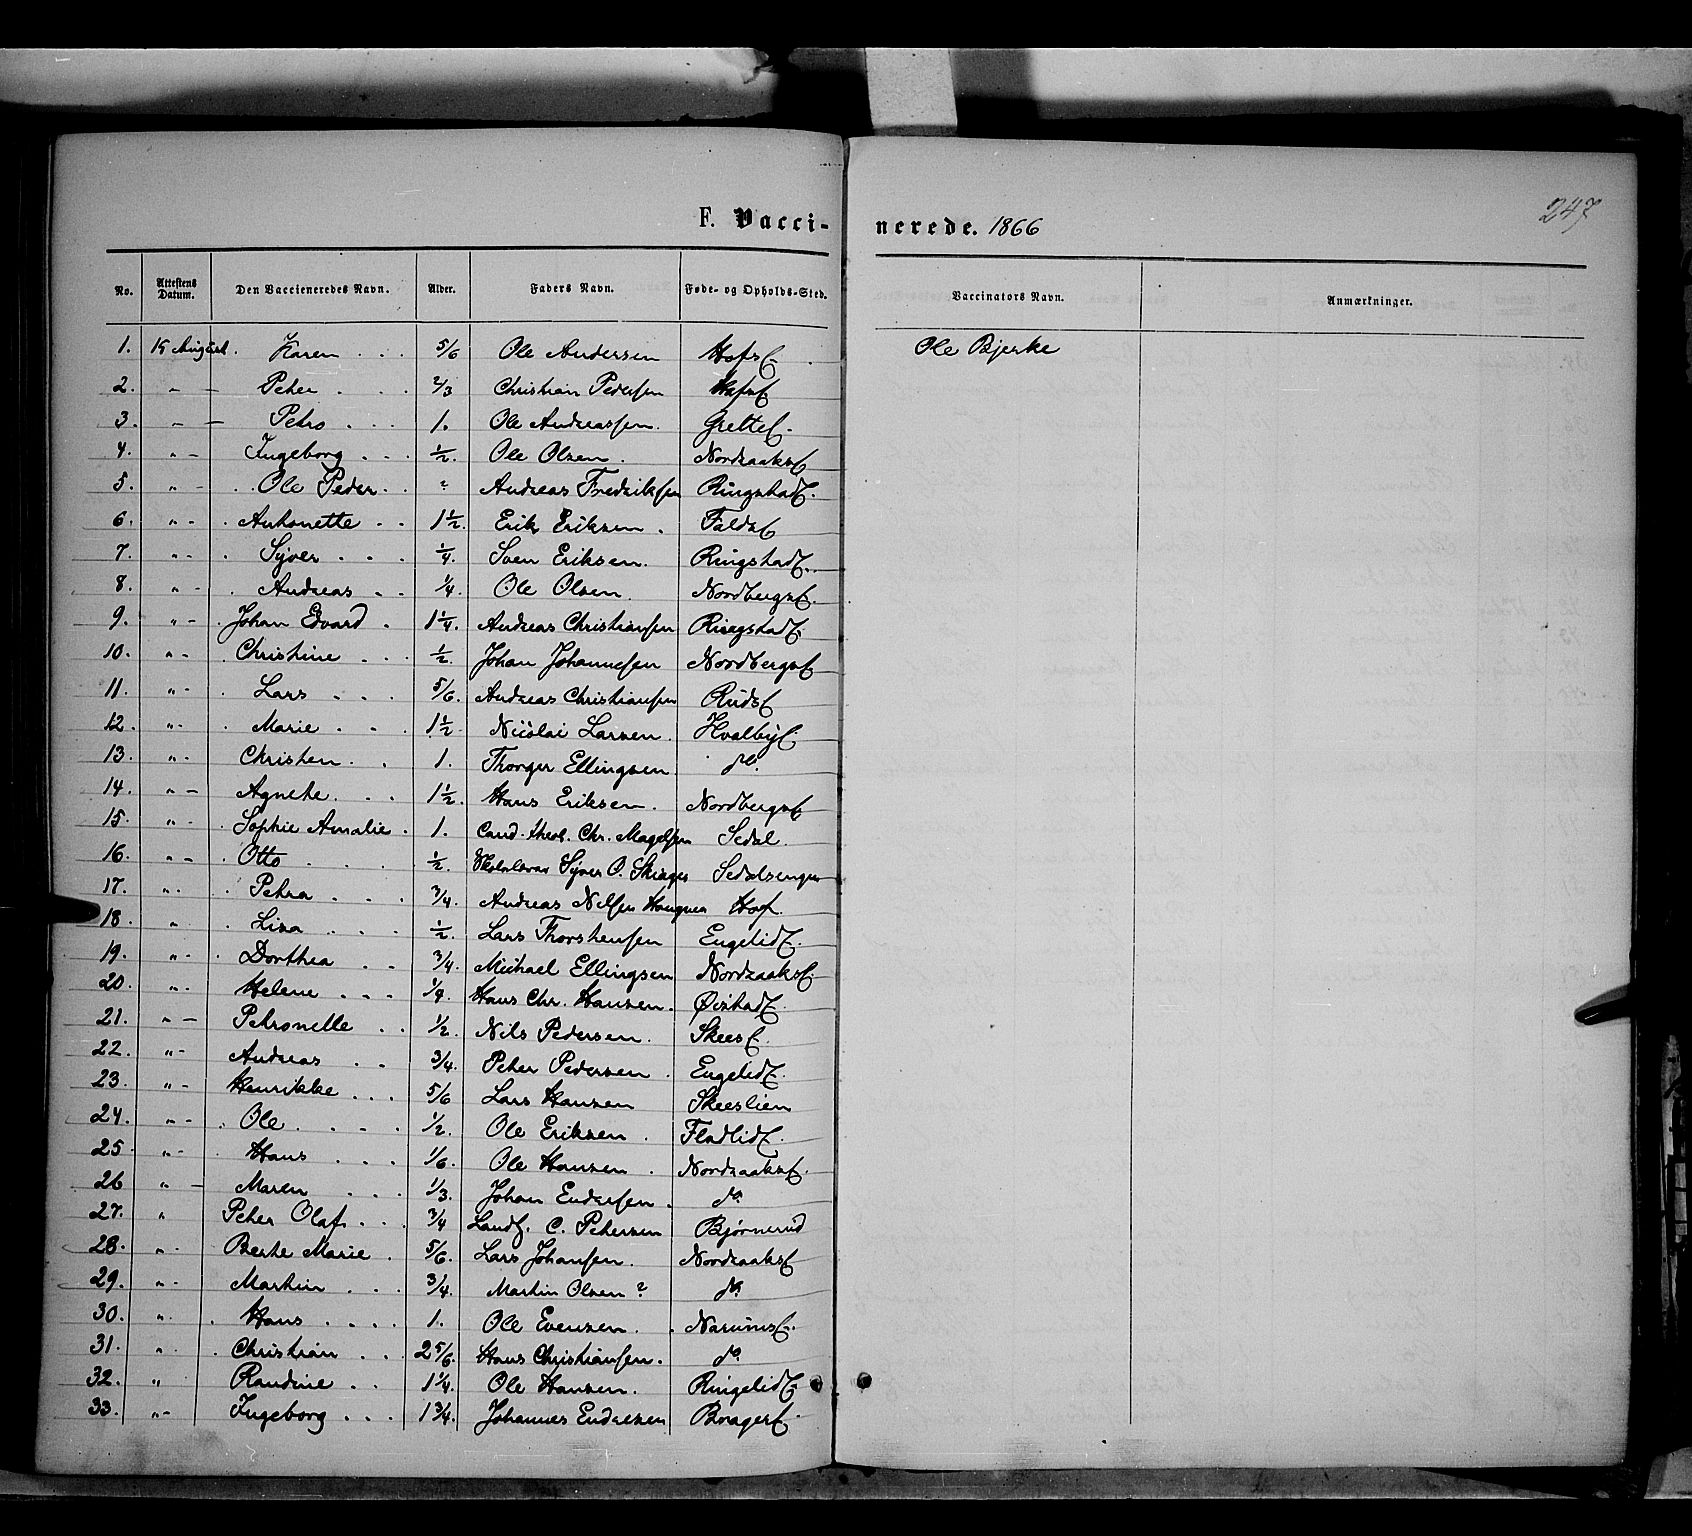 F. Vaccinerede. 1866
247
No. Attestens Datum. Den Vaccieneredes Navn. Alder. Faders Navn. Føde- og Opholds-Sted. Vaccinators Navn. Anmærkninger.
1. August. Karen 5/6 Ole Andersen Ole Bjerke
2. " - Peter 2/3 Christian Pedersen
3. " - Petro 1. Ole Andreassen.
4. " - Ingeborg 1/2. Ole Olsen.
5. " - Ole Peder ? Andreas Fredriksen
6. " - Antonette 1 1/2. Erik Eriksen.
7. " - Syver 1/4. Sven Eriksen.
8. " - Andreas 1/4. Ole Olsen.
9. " - Johan Edvard 1 1/4. Andreas Christiansen
10. " - Christine 1/2. Johan Johannesen
11. " - Lars 5/6. Andreas Christiansen
12. " - Marie 1 1/2. Nicolai Larsen.
13. " - Christen 1. Thorger Ellingsen do.
14. " - Agnete. 1 1/2. Hans Eriksen.
15. " - Sophie Amalie. 1. Cand. theol. Chr. Magelsen Sedal.
16. " - Otto 1/2. Syver O.
17. " - Petra 3/4. Andreas Nilsen Hof.
18. " Lisa 1/2. Lars Thorstensen
19. " - Dorthea 3/4. Michael Ellingsen
20. " - Helene 1/4. Hans Chr. Hansen.
21. " - Petronelle 1/2. Nils Pedersen.
22. " - Andreas 3/4. Peter Pedersen.
23. " - Henrikke 5/6 Lars Hansen Skeeslien
24. " - Ole 1/2. Ole Eriksen.
25 " - Hans 1/6. Ole Hansen.
26 " - Maren 1/3. Johan Endersen. do.
27. " Peter Olaf 3/4 C. Petersen Bjørnerud
28. " - Berte Marie 5/6. Lars Johansen.
29. " - Martin 3/4. Martin Olsen ? do.
30. " - Hans 1. Ole Evensen.
31. " - Christian 2 5/6. Hans Christiansen. do.
32. " Randine 1 1/4. Ole Hansen.
33. " - Ingeborg 1 3/4. Johannes Endresen